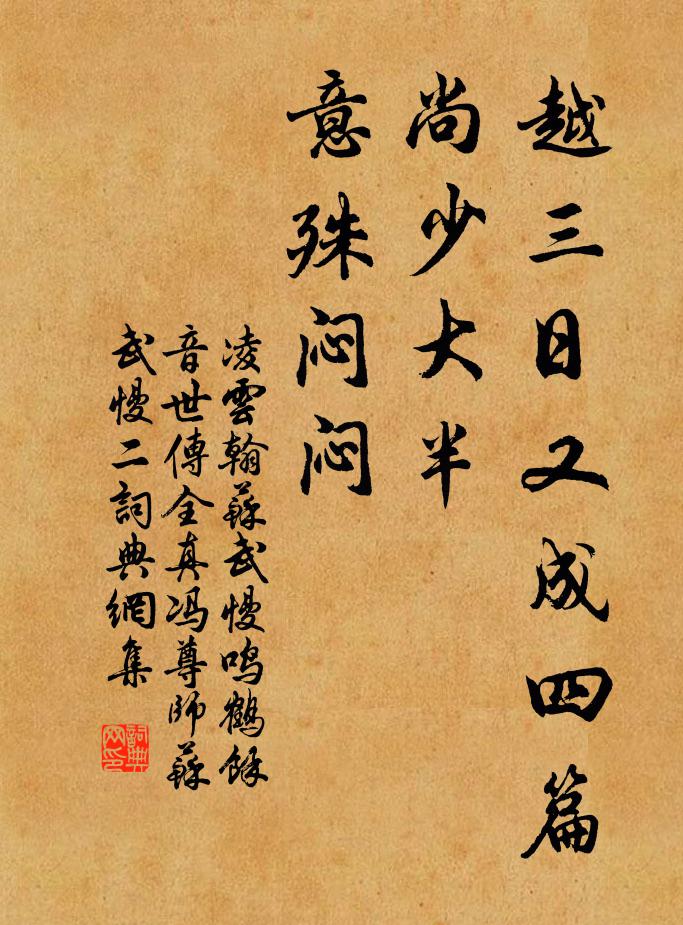 越三日又成四篇
尚少大半
意殊闷闷
凌雲翰蘇武慢鳴鶴餘
音世傳全真冯尊師蘇
武慢二詞典網集
詞典
网印